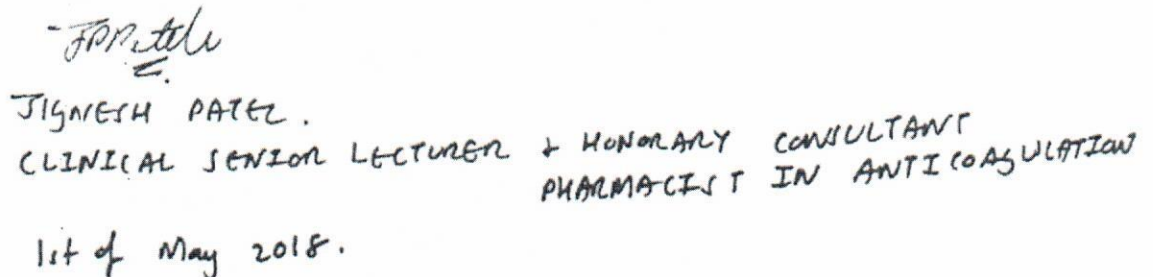 JPPatel
JIGNESH PATEL.
CLINICAL SENIOR LECTURER & HONORARY CONSULTANT
PHARMACIST IN ANTICOAGULATION
1st of May 2018.